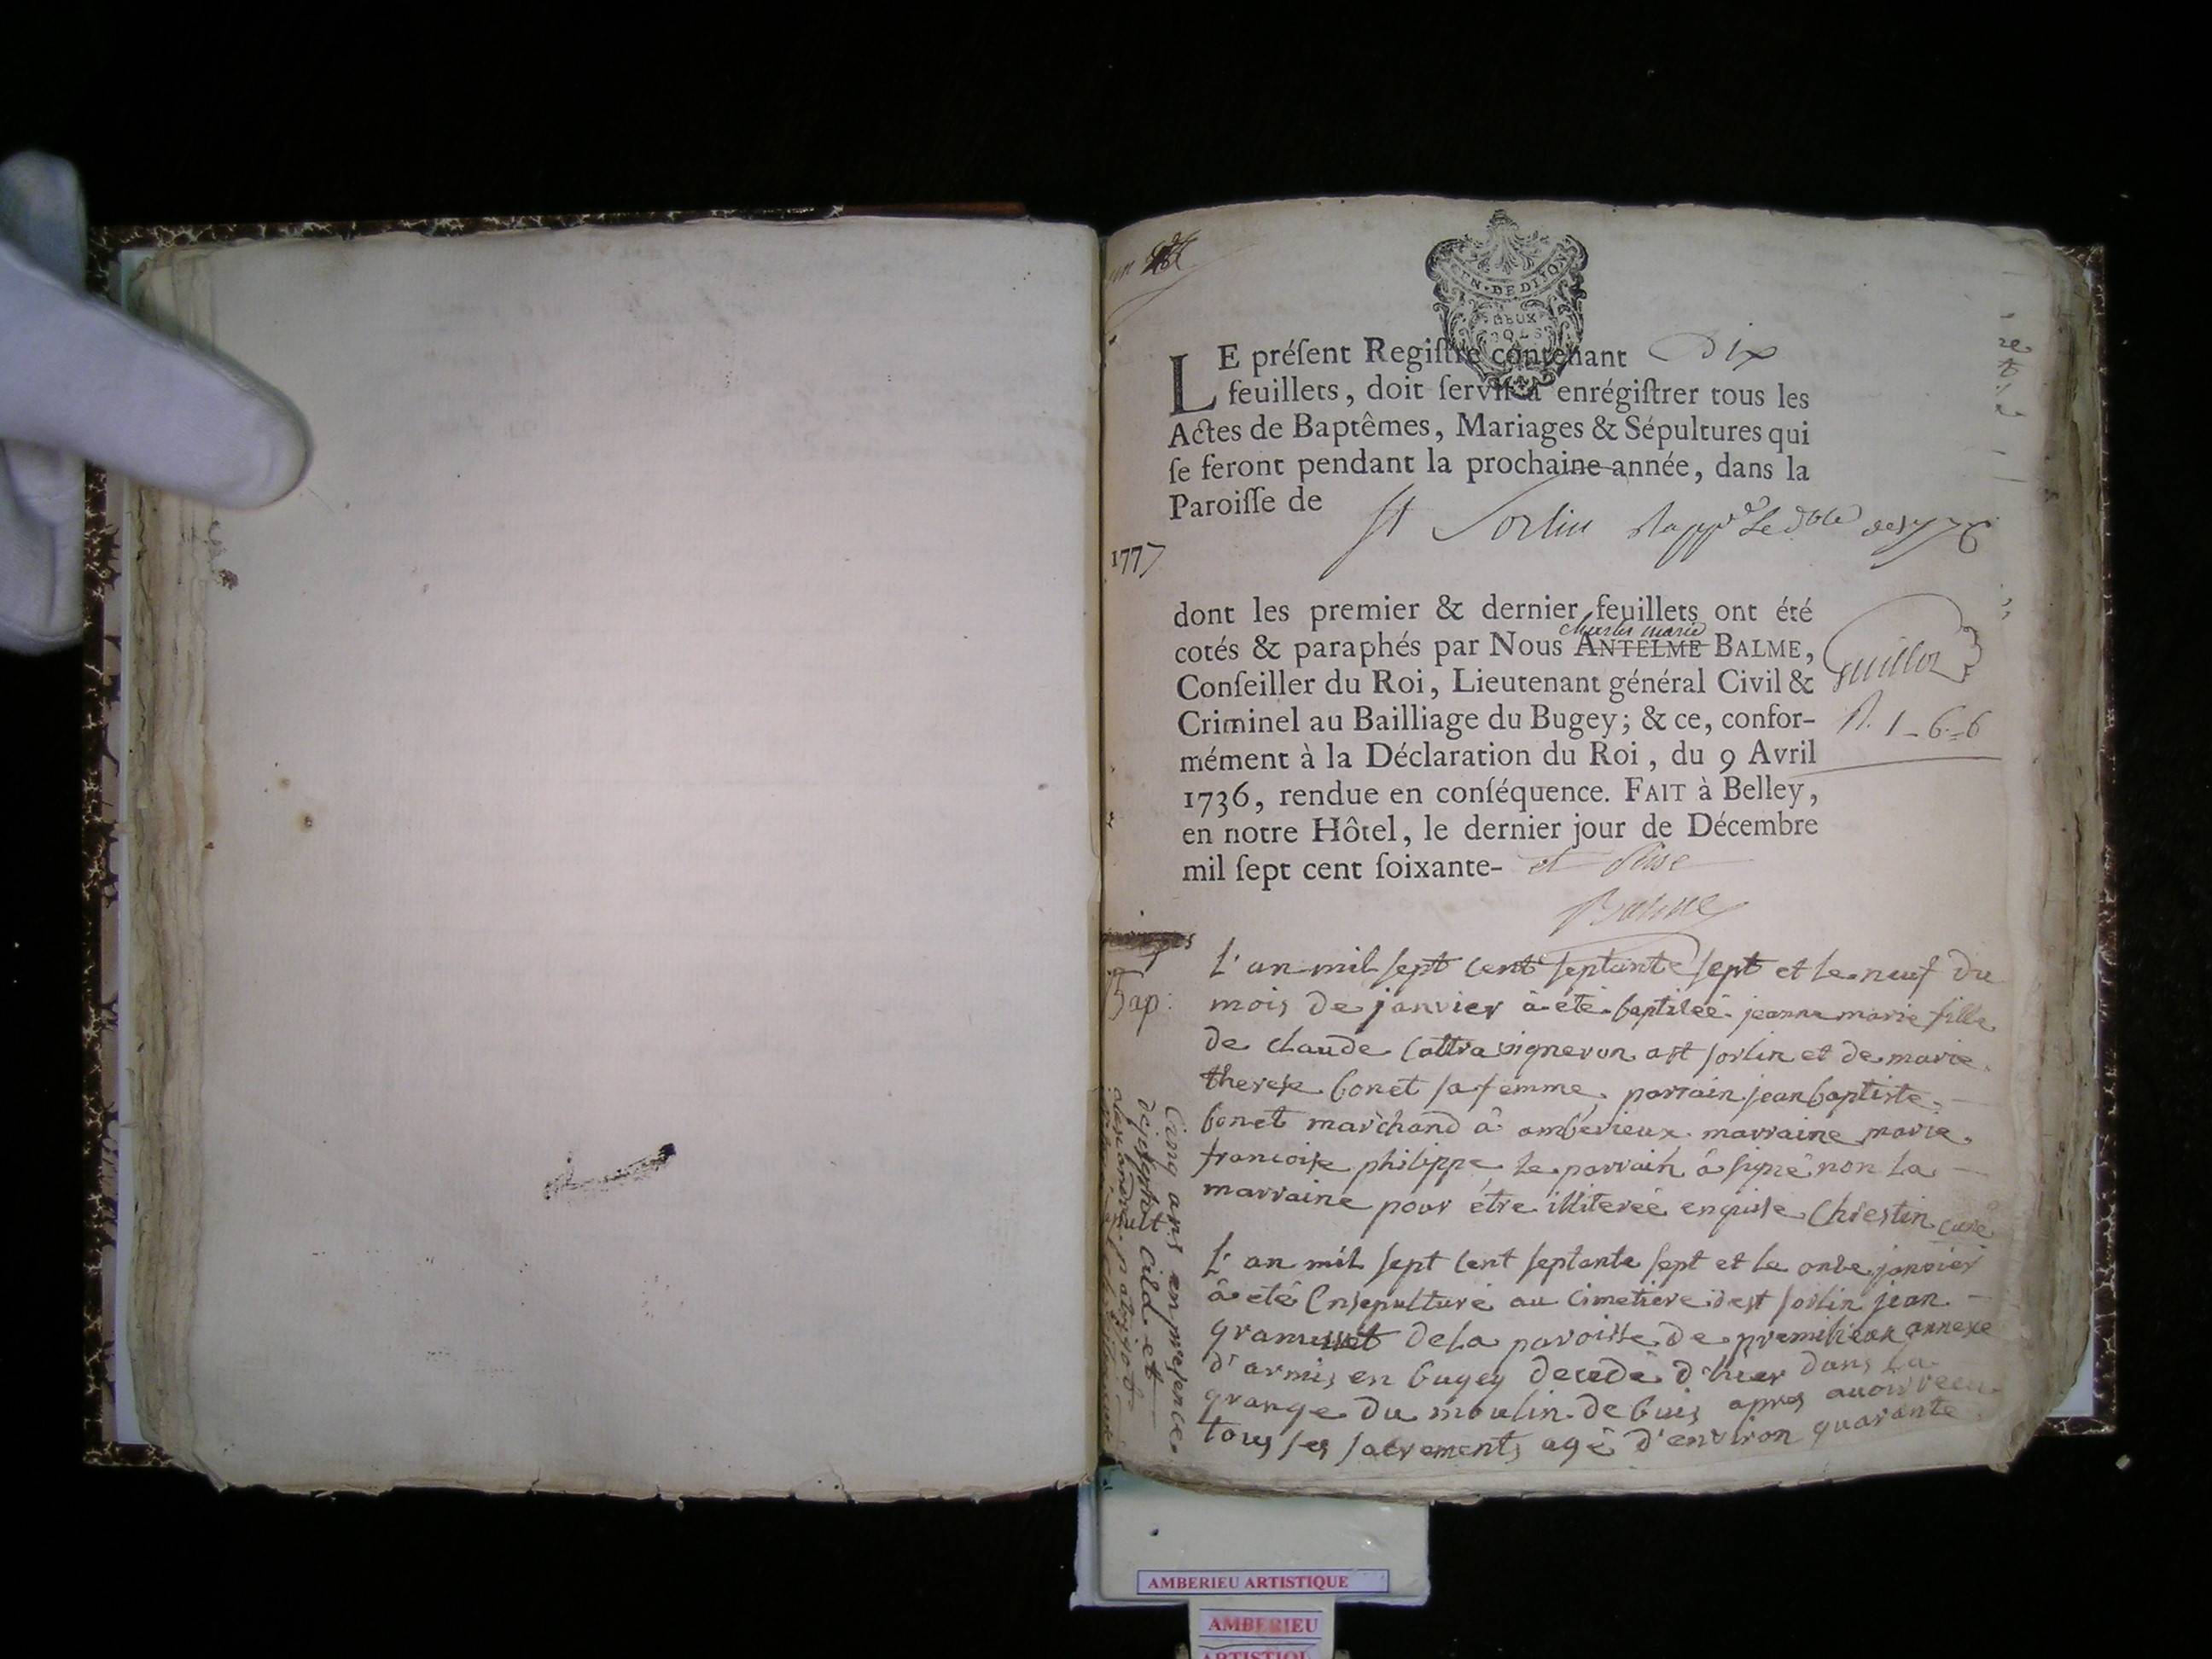 GEN. DE DIJON
DEUX
SOLS
LE préſent Regiſtre contenant Dix
feuillets, doit ſervir à enrégiſtrer tous les
Actes de Baptêmes, Mariages & Sépultures qui
ſe feront pendant la prochaine année, dans la
Paroiſſe de St Sorlin
1777
dont les premier & dernier feuillets ont été
charles marie
cotés & paraphés par Nous ANTELME BALME,
Conſeiller du Roi, Lieutenant général Civil &
Criminel au Bailliage du Bugey; & ce, confor-
mément à la Déclaration du Roi, du 9 Avril
1736, rendue en conſéquence. FAIT à Belley,
en notre Hôtel, le dernier jour de Décembre
mil ſept cent ſoixante- et seize
Balme
Guillot
R. 1-6-6
Bap:
L'an mil sept cent septante sept et le neuf du
mois de janvier à été baptisée jeanne marie fille
de claude cottra vigneron a st sorlin et de marie
therese bonet sa femme, parrain jean baptiste
bonet marchand â amberieux marraine marie
francoise philippe, le parrain â signé non la
marraine pour étre illiterée enquise Chrestin curé
L'an mil sept cent septante sept et le onze janvier
â eté Ensepulturé au cimetiere de st sorlin jean
de la paroisse de premilieux annexe
d'armis en bugey decedé d'hier dans la
grange du moulin de buis apres avoir recu
tous ses sacrements agé d'environ quarante
Cinq ans en présence
de joseph cild et
AMBERIEU ARTISTIQUE
AMBERIEU
ARTISTIQUE